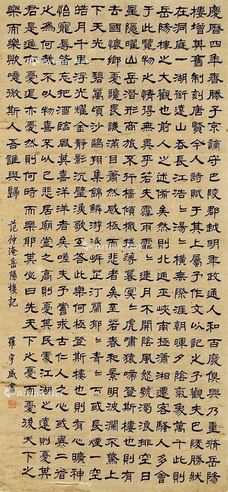 慶曆四年春滕子京謫守巴陵郡越明年政通人和百廢俱興乃重脩岳陽
樓增其舊制刻唐賢今人詩賦于其上屬予作文以記之予觀夫巴陵勝狀
在洞庭一湖銜遠山吞長江浩浩湯湯橫無際涯朝暉夕陰氣象萬千此則
岳陽樓之大觀也前人之述備矣然則北通巫峽南極瀟湘遷客騷人多會
于此覽物之情得無異乎若夫霪雨霏霏連月不開陰風怒號濁浪排空日
星隱曜山岳潛形商旅不行檣傾楫摧薄暮冥冥虎嘯猿啼登斯樓也則有
去國懷鄉憂讒畏譏滿目蕭然感極而悲者矣至若春和景明波瀾不驚上
下天光一碧萬頃沙鷗翔集錦鱗游泳岸芷汀蘭郁郁青青而或長煙一空
皓月千里浮光耀金靜影沉璧漁歌互答此樂何極登斯樓也則有心曠神
怡寵辱皆忘把酒臨風其喜洋洋者矣嗟夫予嘗求古仁人之心或異二者
之為何哉不以物喜不以己悲居廟堂之高則憂其民處江湖之遠則憂其
君是進亦憂退亦憂然則何時而樂耶其必曰先天下之憂而憂後天下之
樂而樂歟噫微斯人吾誰與歸
范仲淹岳陽樓記